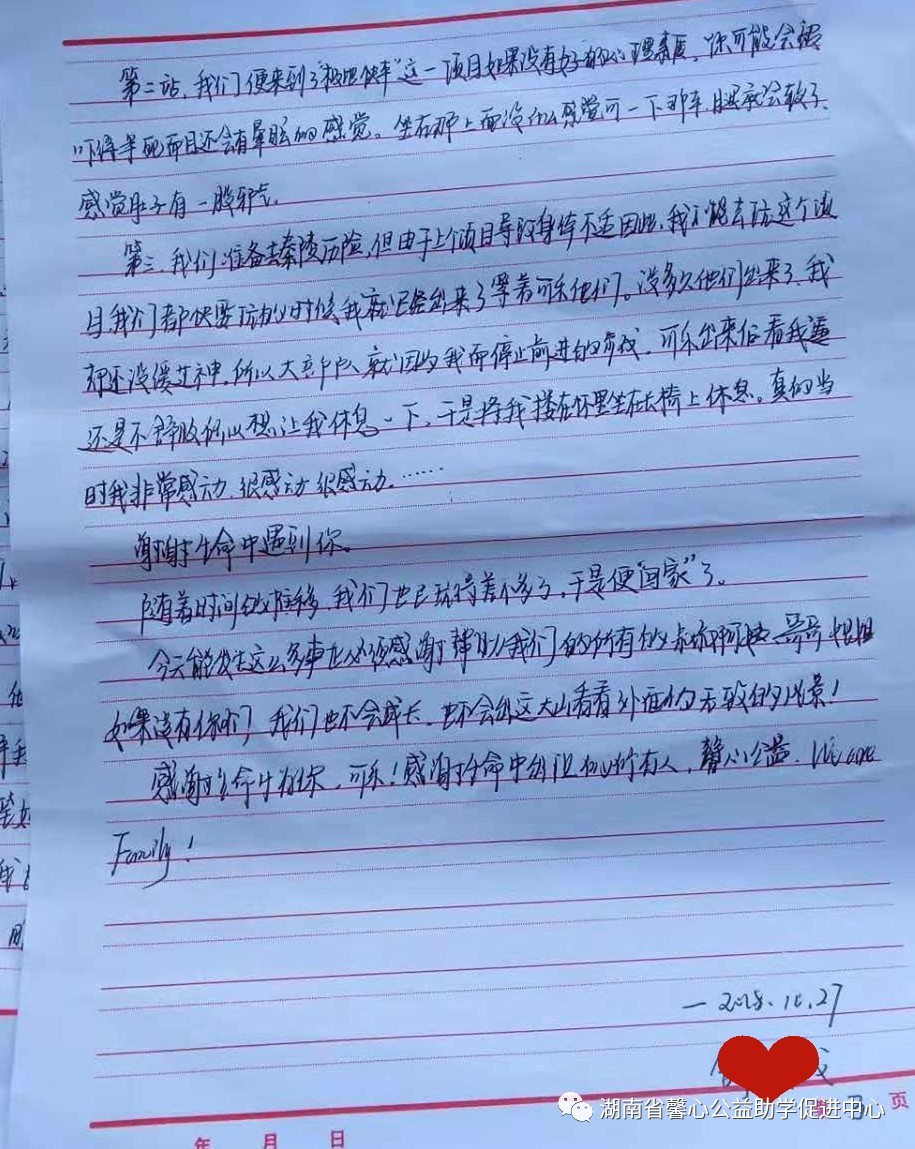 第二站，我们便来到了"极地快车"这一项目如果没有好的心理素质，你可能会被
吓得半死而且还会有晕眩的感觉。坐在那上面没什么感觉可一下那车腿就会软了
感觉肚子有一股邪气
第三，我们准备去秦陵历险，但由于上个项目导致身体不适因此，我不能去玩这个项
目，我们都快要玩的时候我就已经出来了等着可乐他们。没多久他们出来了，我
却还没缓过神，所以大部队就因为我而停止前进的，可乐出来后看我
还是不舒服所以想让我休息一下，于是将我搂在怀里坐在长椅上休息。真的当
时我非常感动、很感动 很感动……
谢谢生命中遇到你。
随着时间的推移，我们也已玩得差不多了，于是便"回家"了。
今天能发生这么多事在必须感谢帮助我们的所有的叔叔阿姨 哥哥 姐姐
如果没有你们，我们也不会成长，也不会出这大山看看外面的的风景！
感谢生命中有你，可乐！感谢生命中的所有人，馨心公益. We are
Family！
一 2018. 10. 27
年 月 日
页
湖南省馨心公益助学促进中心